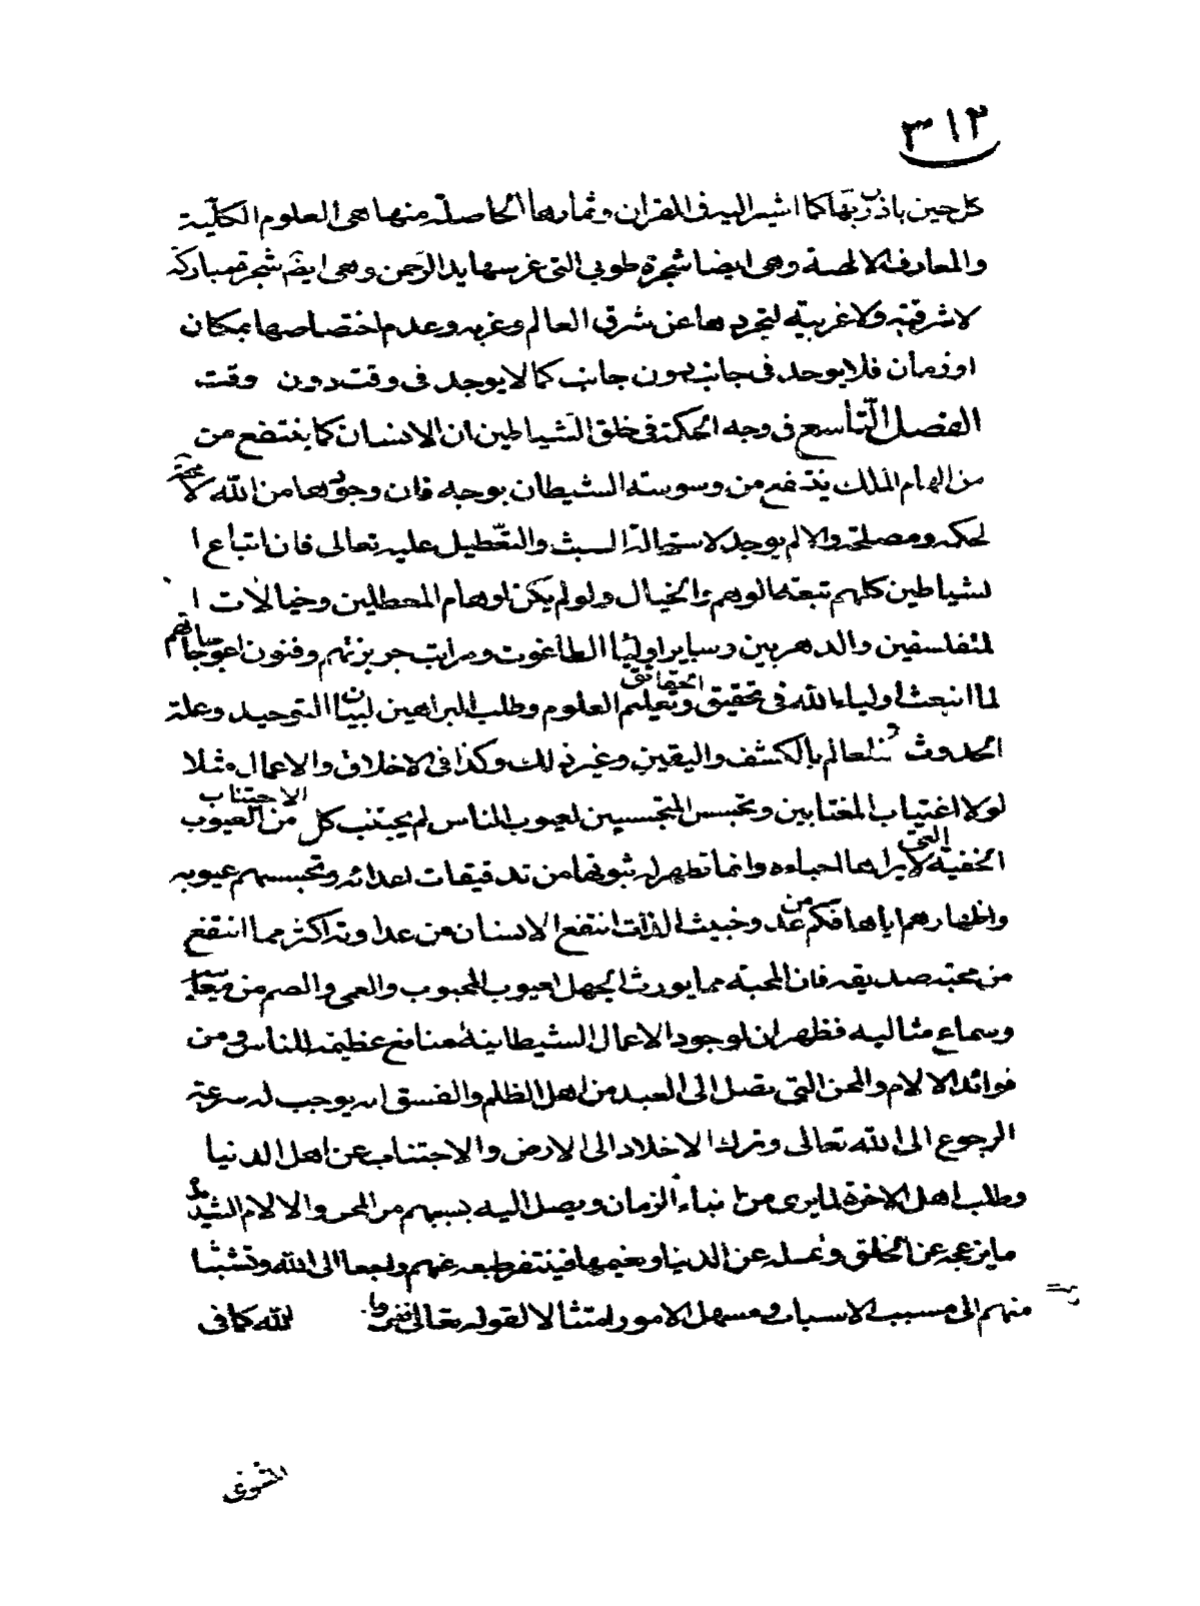 ٣١٢
كل حين باذن ربها كما اشير اليه فى القران وثمارها الحاصلة منها هى العلوم الكلّية
والمعارف الالهية وهى ايضا شجرة طوبى التى غرسها يد الرحمن وهى ايضم شجرة مباركة
لا شرقية ولا غربية لتجردها عن شرق العالم وغربه وعدم اختصاصها بمكان
او زمان فلا يوجد فى جانب دون جانب كما لا يوجد فى وقت دون وقت
الفصل التّاسع فى وجه الحكمة فى خلق الشياطين ان الانسان كما ينتفع من
من الهام الملك ينتفع من وسوسته الشيطان بوجه فان وجودها من الله لا محة
لحكمه ومصلحة والا لم يوجد لاستحالة العبث والتعّطيل عليه تعالى فان اتباع ا
لشياطين كلهم تبعة الوهم والخيال ولو لم يكن اوهام المعطلين وخيالات ا
لمتفلسفين والدهريين وساير اولياا الطاغوت ومراتب جربزتهم وفنون اعوجاجاتهم
لما انبعث اولياء الله فى تحقيق الحقائق وتعليم العلوم وطلب البراهين لبيان التوحيد وعلة
الحدوث للعالم بالكشف واليقين وغير ذلك وكذا فى الاخلاق والاعمال مثلا
لولا اغتياب المغتابين وتجسس المتجسسين لعيوب الناس لم يجتنب كل الاجتناب من العيوب
الخفية التى لا يراها احباءه وانما تظهر له ثبوتها من تدقيقات اعدائه وتجسسهم عيوبه
واظهارهم اياها فكم من عدو خبيث الذات انتفع الانسان من عداوته اكثر مما انتفع
من محبة صديقه فان المحبة مما يورث الجهل لعيوب المحبوب والعمى والصم من
وسماع مثالبه فظهر ان لوجود الاعمال الشيطانية منافع عظيمة للناس ومن
فوائد الالام والمحن التى تصل الى العبد من اهل الظلم والفسق انه يوجب له سرعة
الرجوع الى الله تعالى وترك الاخلاد الى الارض والاجتناب عن اهل الدنيا
وطلب اهل الاخرة لما يرى من ابناء الزمان ويصل اليه بسببهم من المحن والالام الشديد
ما يزعجه عن الخلق وغسله عن الدنيا ونعيمها فينتفر طبعه عنهم راجعا الى الله وتشبثا
منهم الى مسبب الاسباب ومسهل الامور امتثالا لقوله تعالى ففروا لله كما فى
المثنوى